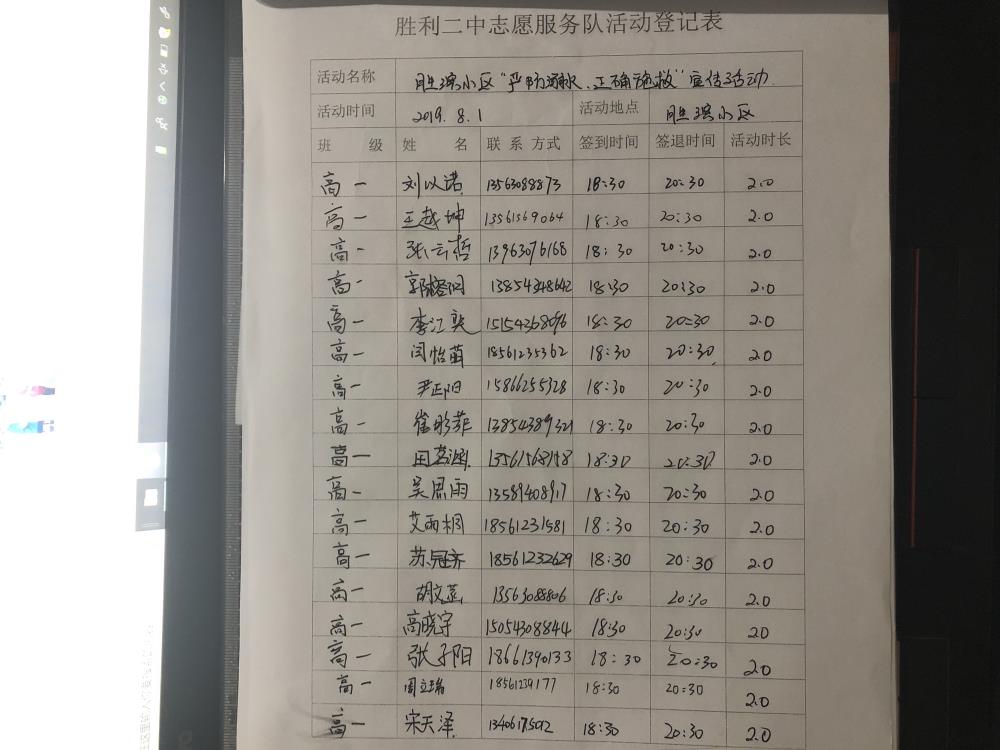 胜利二中志愿服务队活动登记表
活动名称 胜瑞小区"严防溺水、正确施救"宣传活动
活动时间 2019.8.1 活动地点 胜瑞小区
班 级 姓 名 联系方式 签到时间 签退时间 活动时长
高一 刘以诺 13563088873 18:30 20:30 2.0
高一 王越坤 13561569064 18:30 20:30 2.0
高一 张云哲 13963076168 18:30 20:30 2.0
高一 郭榕 13854348642 18:30 20:30 2.0
高一 李江奕 15154368096 18:30 20:30 2.0
高一 闫怡苗 18561235362 18:30 20:30 2.0
高一 尹正阳 15866255328 18:30 20:30 2.0
高一 崔彤菲 13854389321 18:30 20:30 2.0
高一 田茗 13561568198 18:30 20:30 2.0
高一 吴思雨 13589408917 18:30 20:30 2.0
高一 艾雨桐 18561231581 18:30 20:30 2.0
高一 苏冠齐 18561232629 18:30 20:30 2.0
高一 胡文 13563088806 18:30 20:30 2.0
高一 高晓宇 15054308844 18:30 20:30 20
高一 张子阳 18661390133 18:30 20:30 2.0
高一 周立瑞 18561239177 18:30 20:30 2.0
高一 宋天泽 13406175012 18:30 20:30 2.0